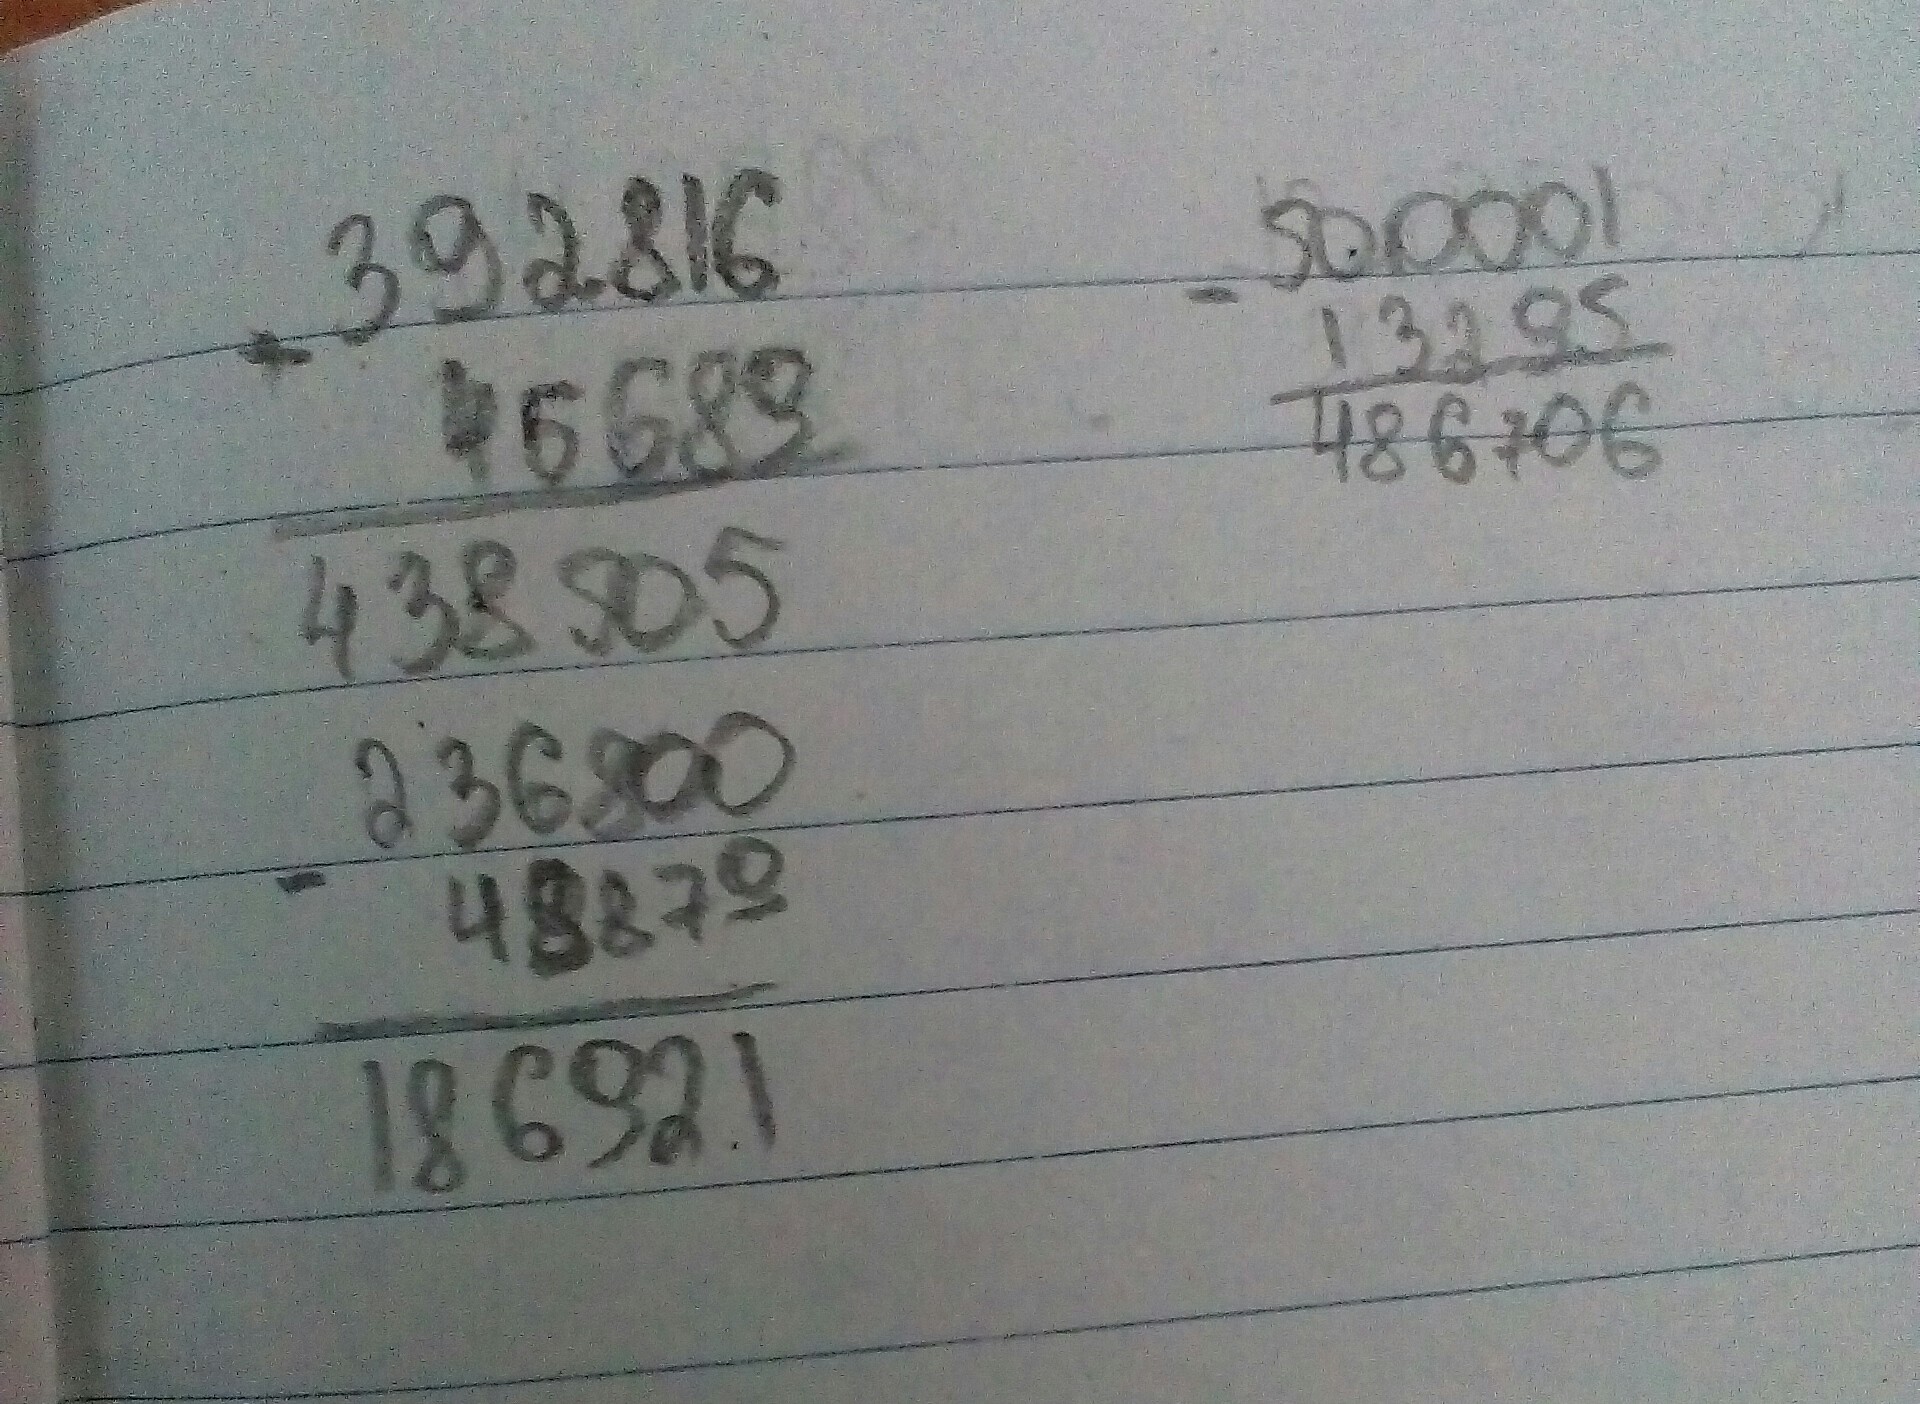 392816
+ 45689
438505
236800
- 48879
186921
500001
- 13295
486706